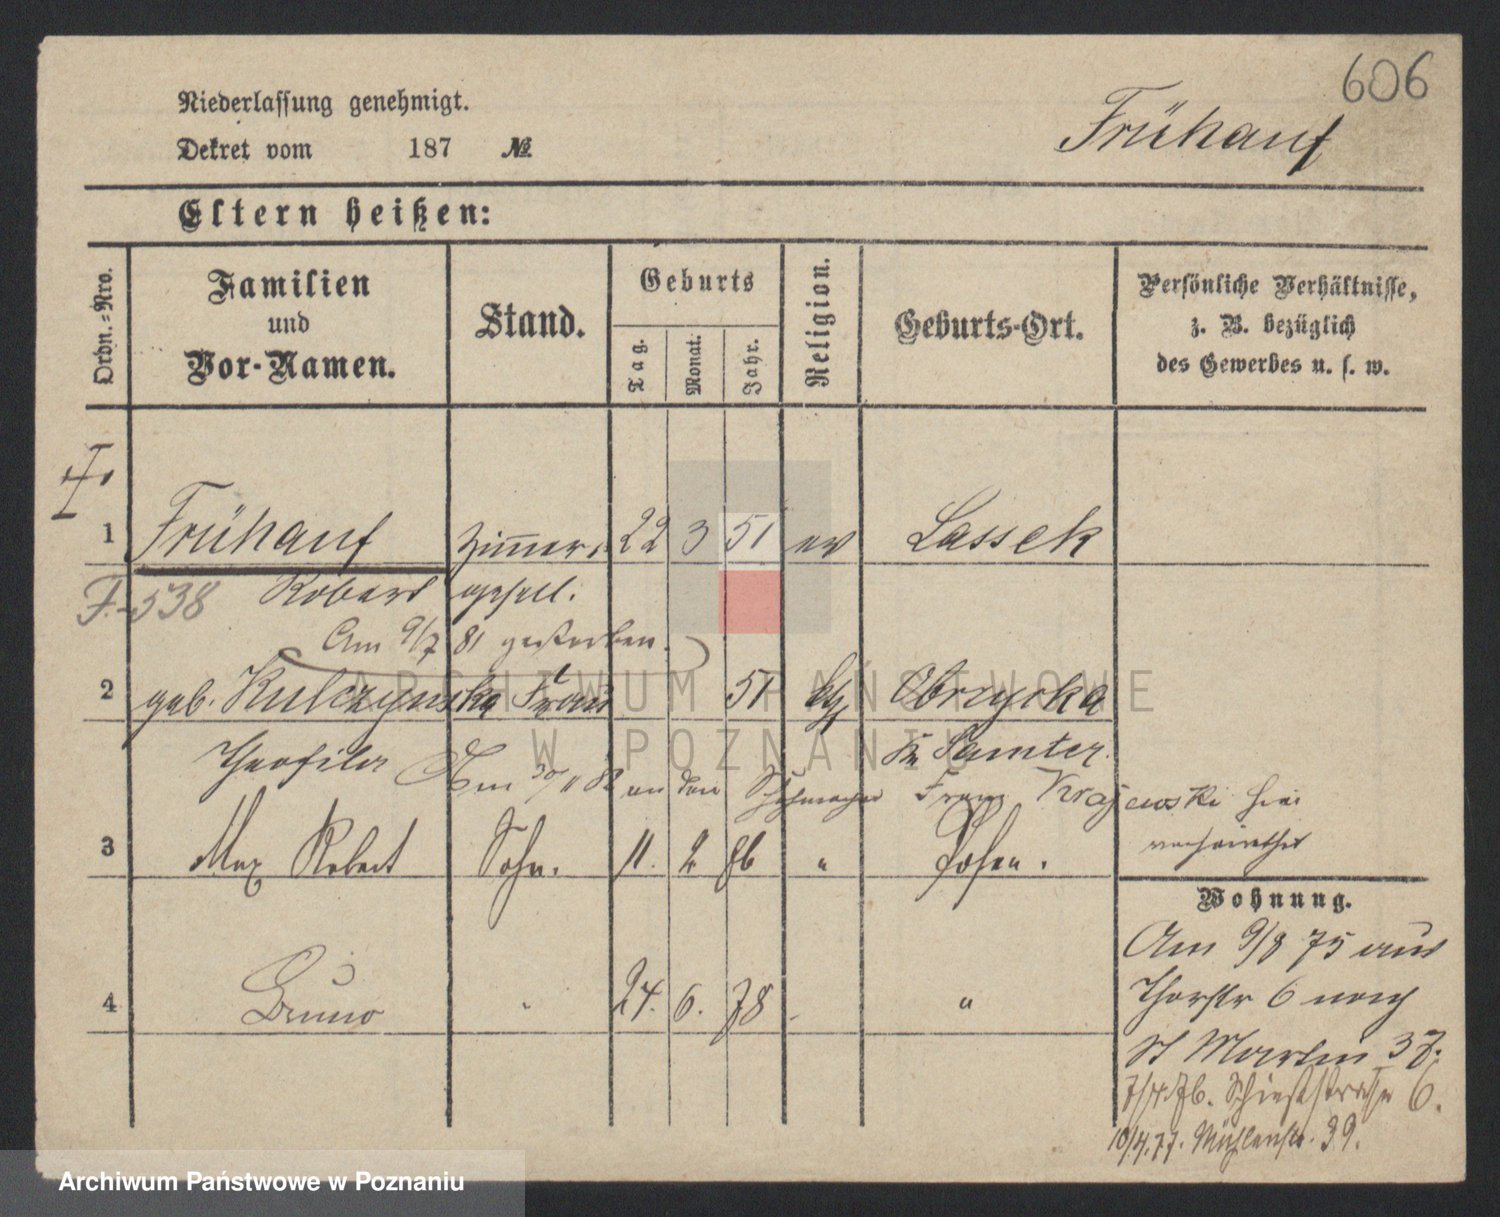 606
Niederlassung genehmigt.
Frühauf
Dekret vom 187 №
Eltern heißen:
Ordn.-Nro.
Familien
und
Vor-Namen.
Stand.
Geburts
Tag.
Monat.
Jahr.
Religion.
Geburts-Ort.
Persönliche Verhältnisse,
z. B. bezüglich
des Gewerbes u. s. w.
1 Frühauf Zimmer- 22 3 51 ev Lassek
F.-538 Robert gesell.
Am 9/7 81 gestorben.
2 geb. Kulczynska Frau 51 Obrzycko
Theofila Kr Samter
Am 30/11 82 an den Franz Krajewski hier
verheirathet
3 Max Robert Sohn. 11. 2 76 " Posen.
4 Bruno " 24. 6. 78 "
Wohnung.
Am 9/8 75 aus
Thorstr 6 nach
St Martin 37.
7/4.76. Schießstraße 6.
10/4.77. Mühlenstr. 39.
ARCHIWUM PAŃSTWOWE
W POZNANIU
Archiwum Państwowe w Poznaniu